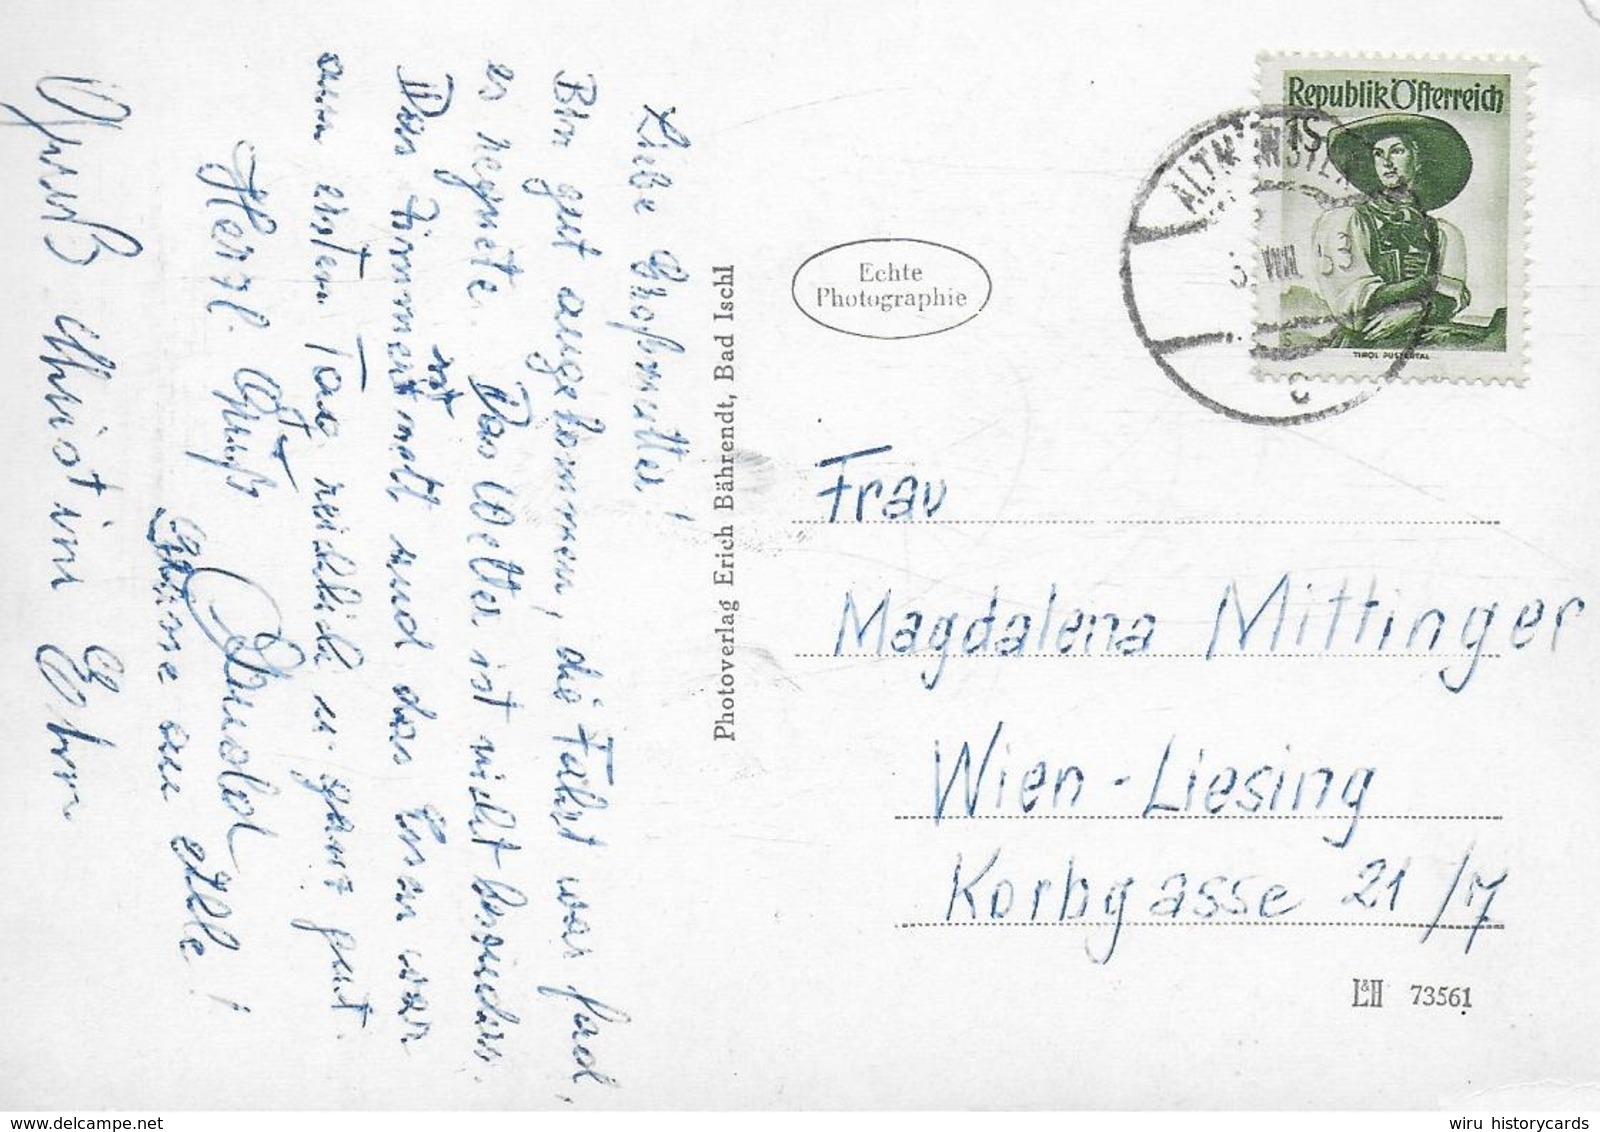 Liebe Großmutter!
Bin gut angekommen, die Fahrt war fad,
es regnete. Das Wetter ist nicht besonders.
Das Zimmer ist nett und das Essen war
am ersten Tag reichlich u. ganz gut.
Herzl. Gruß
Grüsse an alle!
Gruß Christine
Photoverlag Erich Bährendt, Bad Ischl
Echte
Photographie
Republik Österreich
1S
TIROL PUSTERTAL
ALTMÜNSTER
VIII. 53
c
Frau
Magdalena Mittinger
Wien-Liesing
Korbgasse 21/7
L&H 73561
wiru historycards